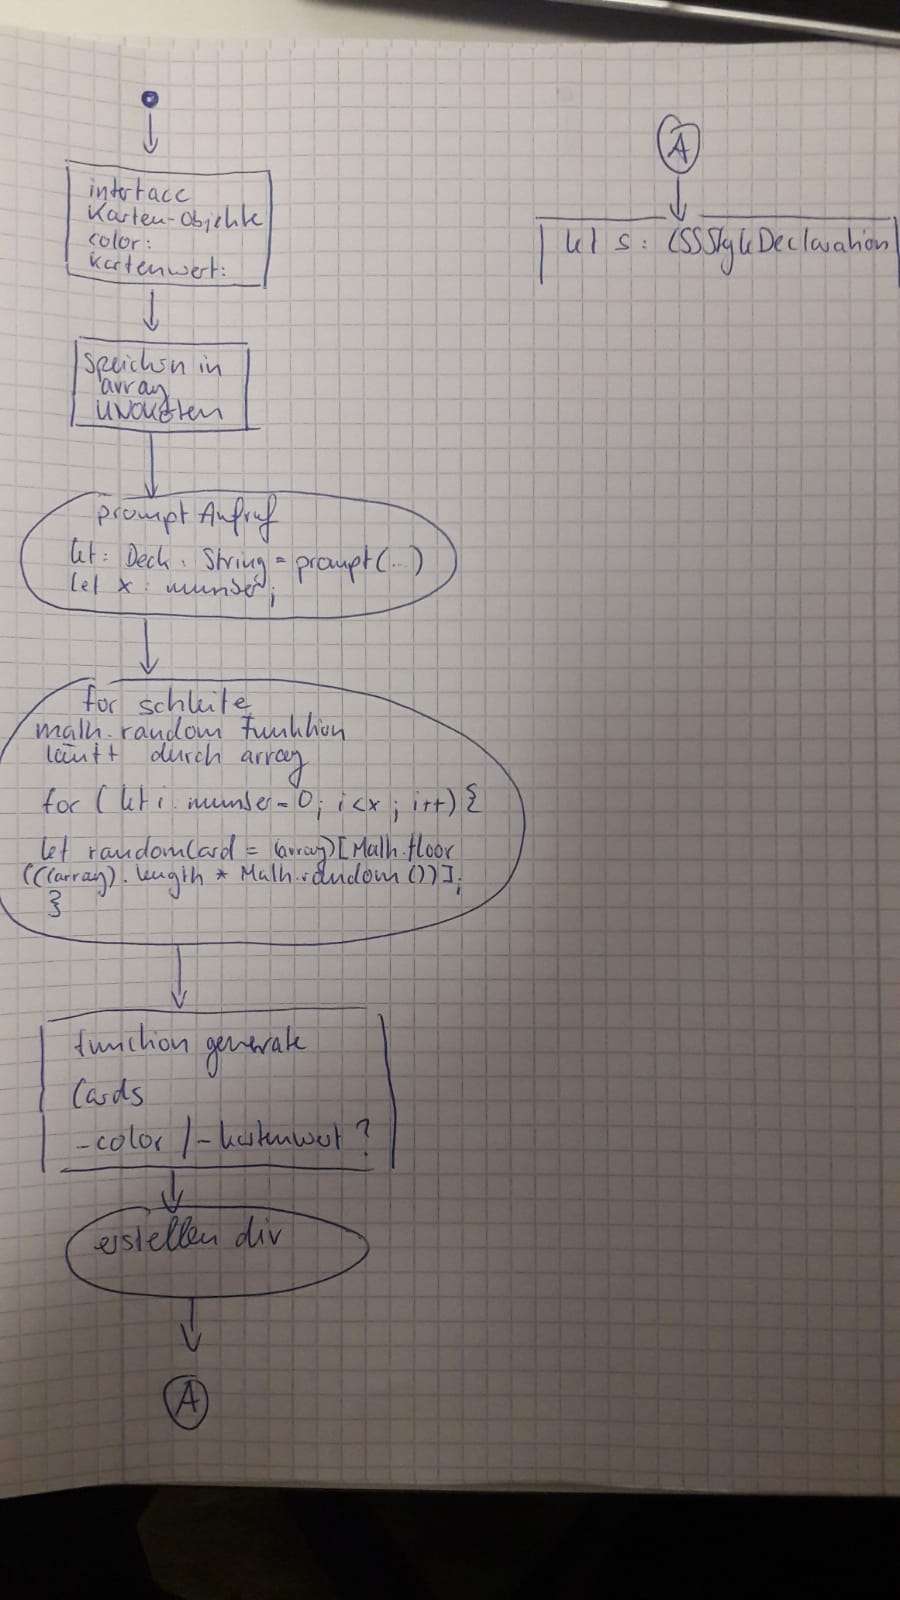 interface
Karten-Objekte
color:
kartenwert:
speichern in
array
UNOKarten
prompt Aufruf
let: Deck: String = prompt(...)
let x: number;
for schleife
math.random Funktion
läuft durch array
for ( let i: number = 0; i<x ; i++) {
let randomCard = (array)[Math.floor
(((array).length * Math.random())];
}
function generate
Cards
-color /-kartenwert ?
erstellen div
A
A
let s: CSSStyleDeclaration